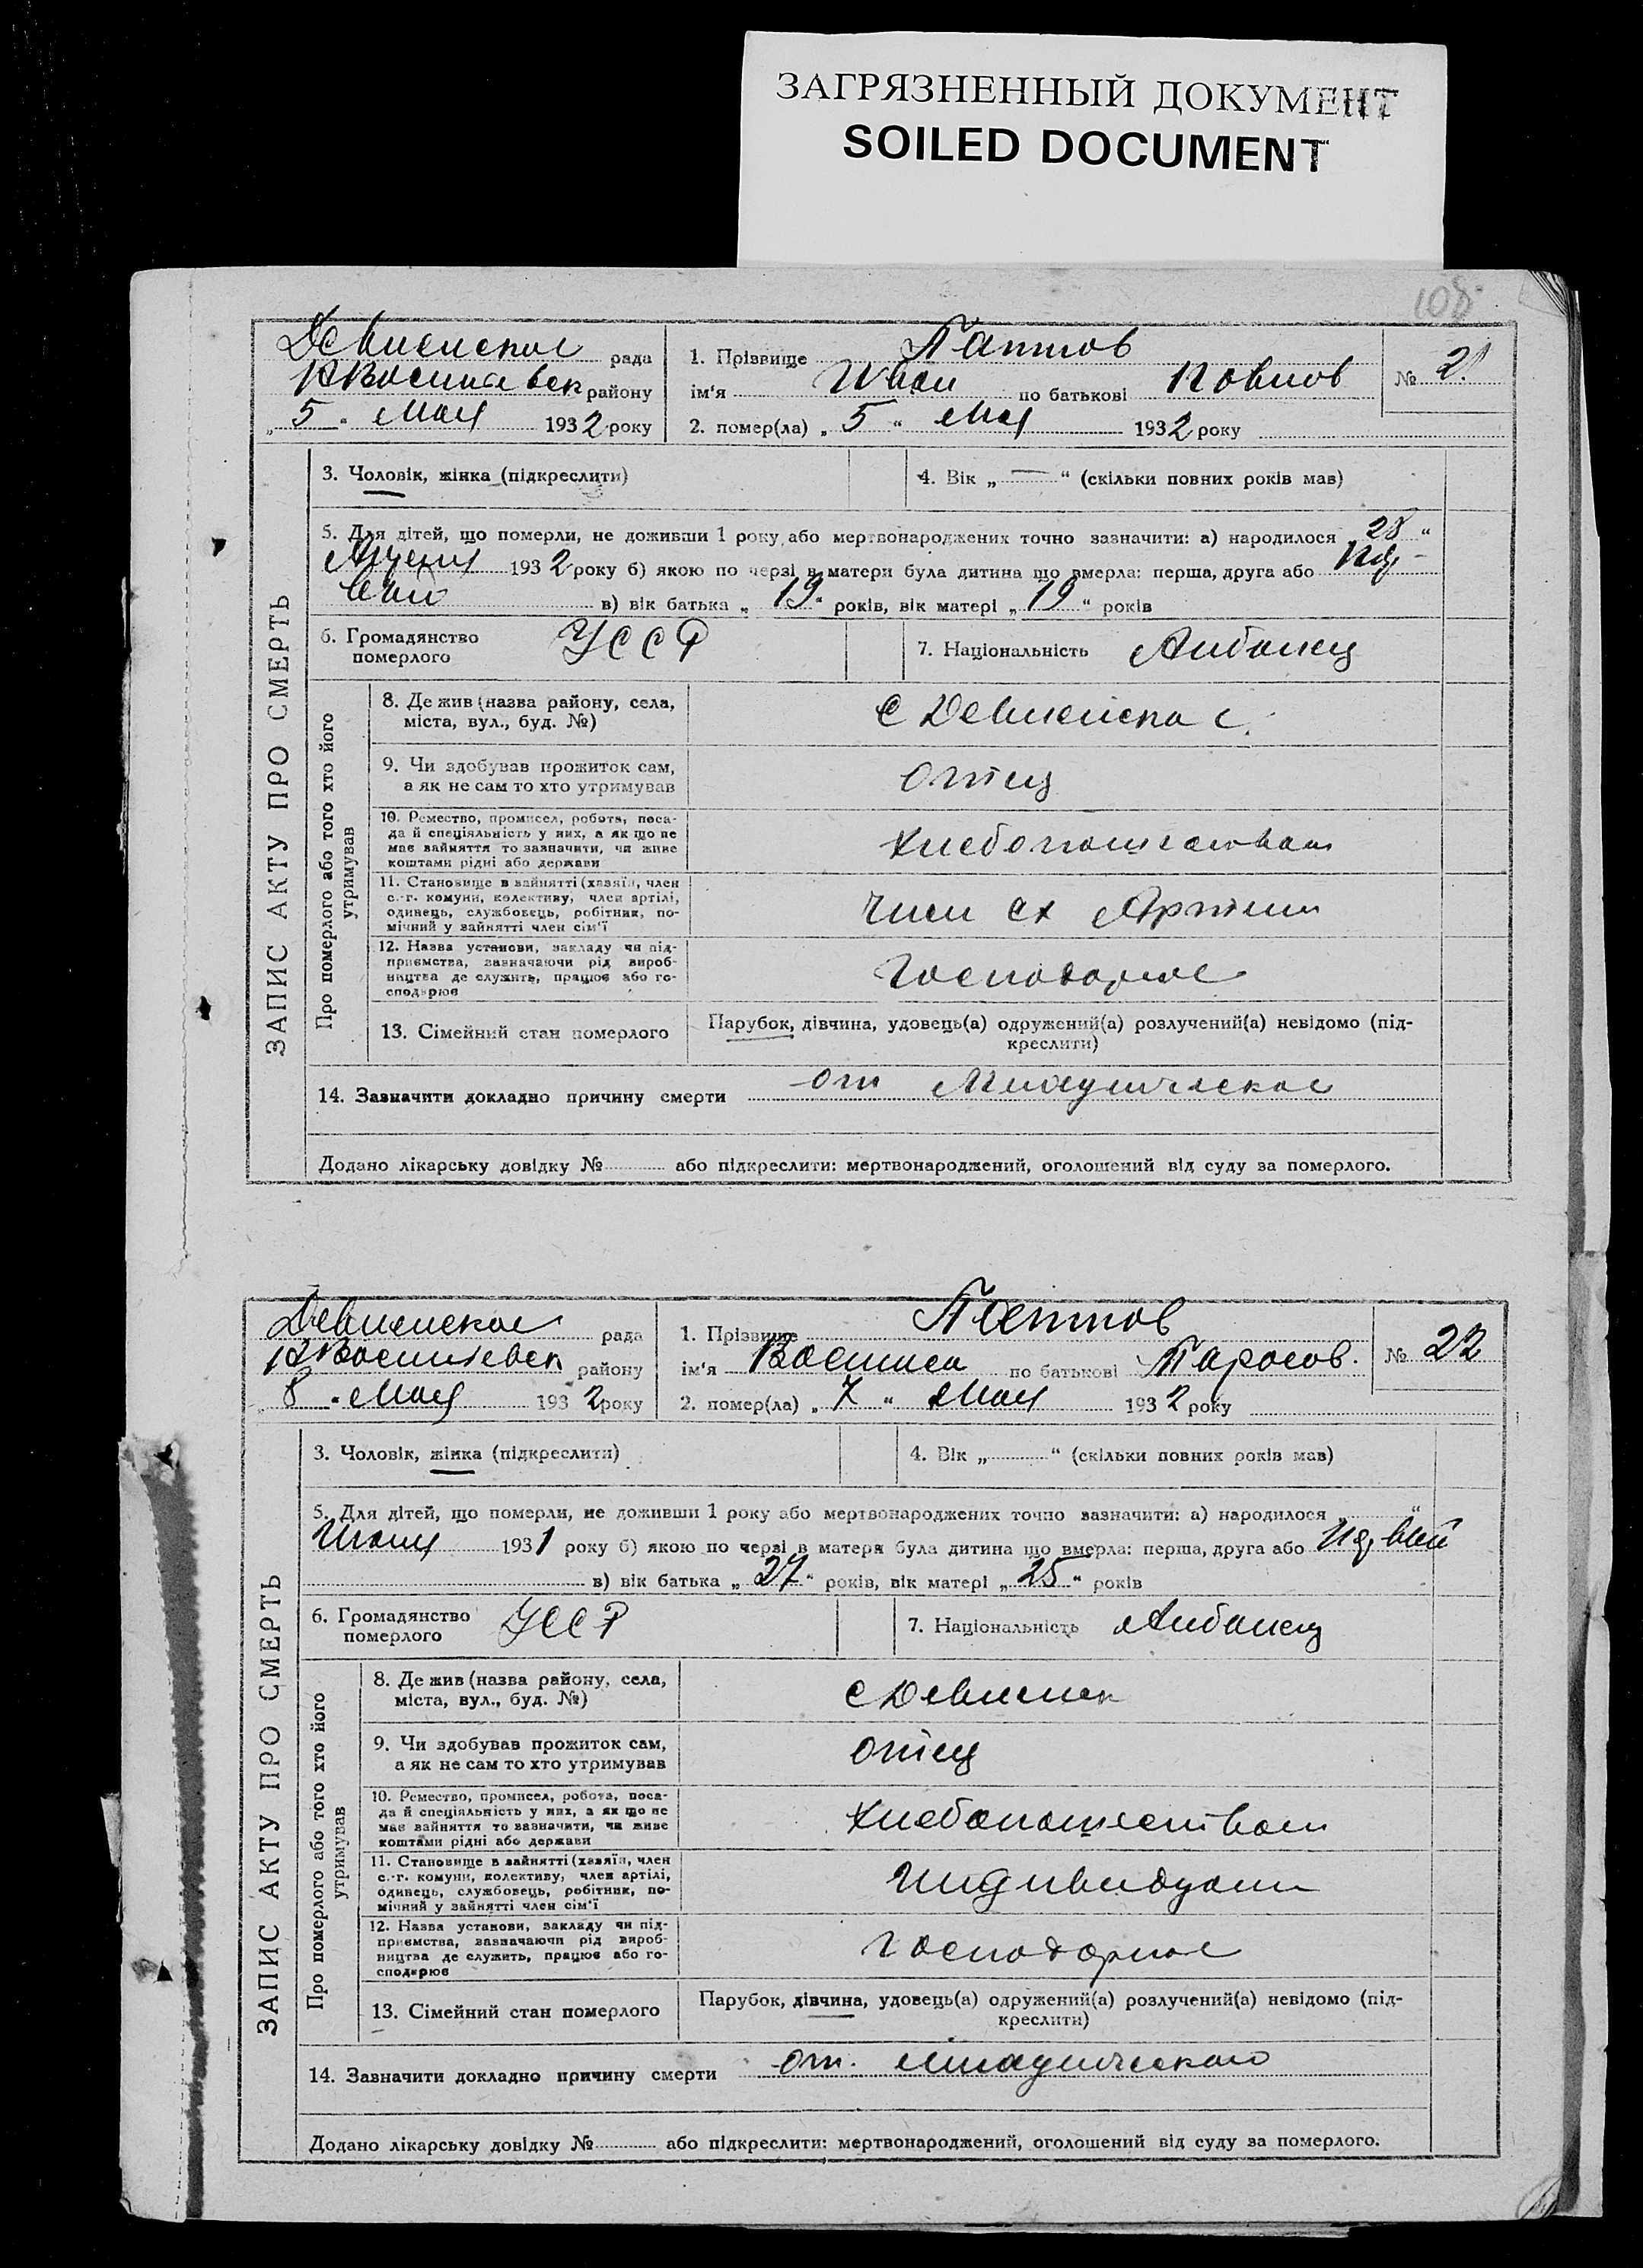 ЗАГРЯЗНЕННЫЙ ДОКУМЕНТ
SOILED DOCUMENT
108
ЗАПИС АКТУ ПРО СМЕРТЬ
Девненское рада
району
„ 5 “ Мая 1932 року
1. Прізвище Паппов
ім'я Иван по батькові
№ 21
2. помер(ла) „ 5 “ Мая 1932 року
3. Чоловік, жінка (підкреслити)
4. Вік „ — “ (скільки повних років мав)
5. Для дітей, що померли, не доживши 1 року або мертвонароджених точно зазначити: а) народилося 28 “
1932 року б) якою по черзі в матери була дитина що вмерла: перша, друга або пер-
вый в) вік батька „ 19 “ років, вік матері „ 19 “ років
6. Громадянство
померлого
УССР
7. Національність Албанец
Про померлого або того хто його
утримував
8. Де жив (назва району, села,
міста, вул., буд. №)
9. Чи здобував прожиток сам,
а як не сам то хто утримував
отец
10. Ремество, промисел, робота, поса-
да й спеціяльність у них, а як що не
має вайняття то зазначити, чи живе
коштами рідні або держави
хлебопашеством
11. Становище в вайнятті (хазяїн, член
с.-г. комуни, колективу, член артілі,
одинець, службовець, робітник, по-
мічний у вайнятті член сім'ї
член сх Артели
12. Назва установи, закладу чи під-
приємства, зазначаючи рід вироб-
ництва де служить, працює або го-
сподарює
господарное
13. Сімейний стан померлого
Парубок, дівчина, удовець(а) одружений(а) розлучений(а) невідомо (під-
креслити)
14. Зазначити докладно причину смерти от
Додано лікарську довідку № або підкреслити: мертвонароджений, оголошений від суду за померлого.
ЗАПИС АКТУ ПРО СМЕРТЬ
Девненское рада
району
„ 8 “ Мая 1932 року
1. Прізвище Паппов
ім'я по батькові Тарасов.
№ 22
2. помер(ла) „ 7 “ Мая 1932 року
3. Чоловік, жінка (підкреслити)
4. Вік „ “ (скільки повних років мав)
5. Для дітей, що померли, не доживши 1 року або мертвонароджених точно зазначити: а) народилося “
1931 року б) якою по черзі в матери була дитина що вмерла: перша, друга або первый
в) вік батька „ 27 “ років, вік матері „ 25 “ років
6. Громадянство
померлого
УССР
7. Національність Албанец
Про померлого або того хто його
утримував
8. Де жив (назва району, села,
міста, вул., буд. №)
9. Чи здобував прожиток сам,
а як не сам то хто утримував
отец
10. Ремество, промисел, робота, поса-
да й спеціяльність у них, а як що не
має вайняття то зазначити, чи живе
коштами рідні або держави
хлебопашеством
11. Становище в вайнятті (хазяїн, член
с.-г. комуни, колективу, член артілі,
одинець, службовець, робітник, по-
мічний у вайнятті член сім'ї
12. Назва установи, закладу чи під-
приємства, зазначаючи рід вироб-
ництва де служить, працює або го-
сподарює
господарное
13. Сімейний стан померлого
Парубок, дівчина, удовець(а) одружений(а) розлучений(а) невідомо (під-
креслити)
14. Зазначити докладно причину смерти от.
Додано лікарську довідку № або підкреслити: мертвонароджений, оголошений від суду за померлого.